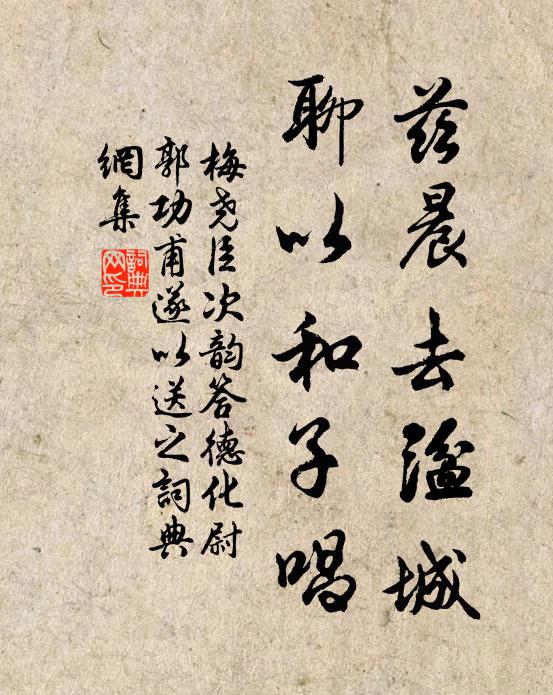 茲晨去湓城
聊以和子唱
梅堯臣次韵答德化尉
郭功甫遂以送之詞典
網集
詞典
网印